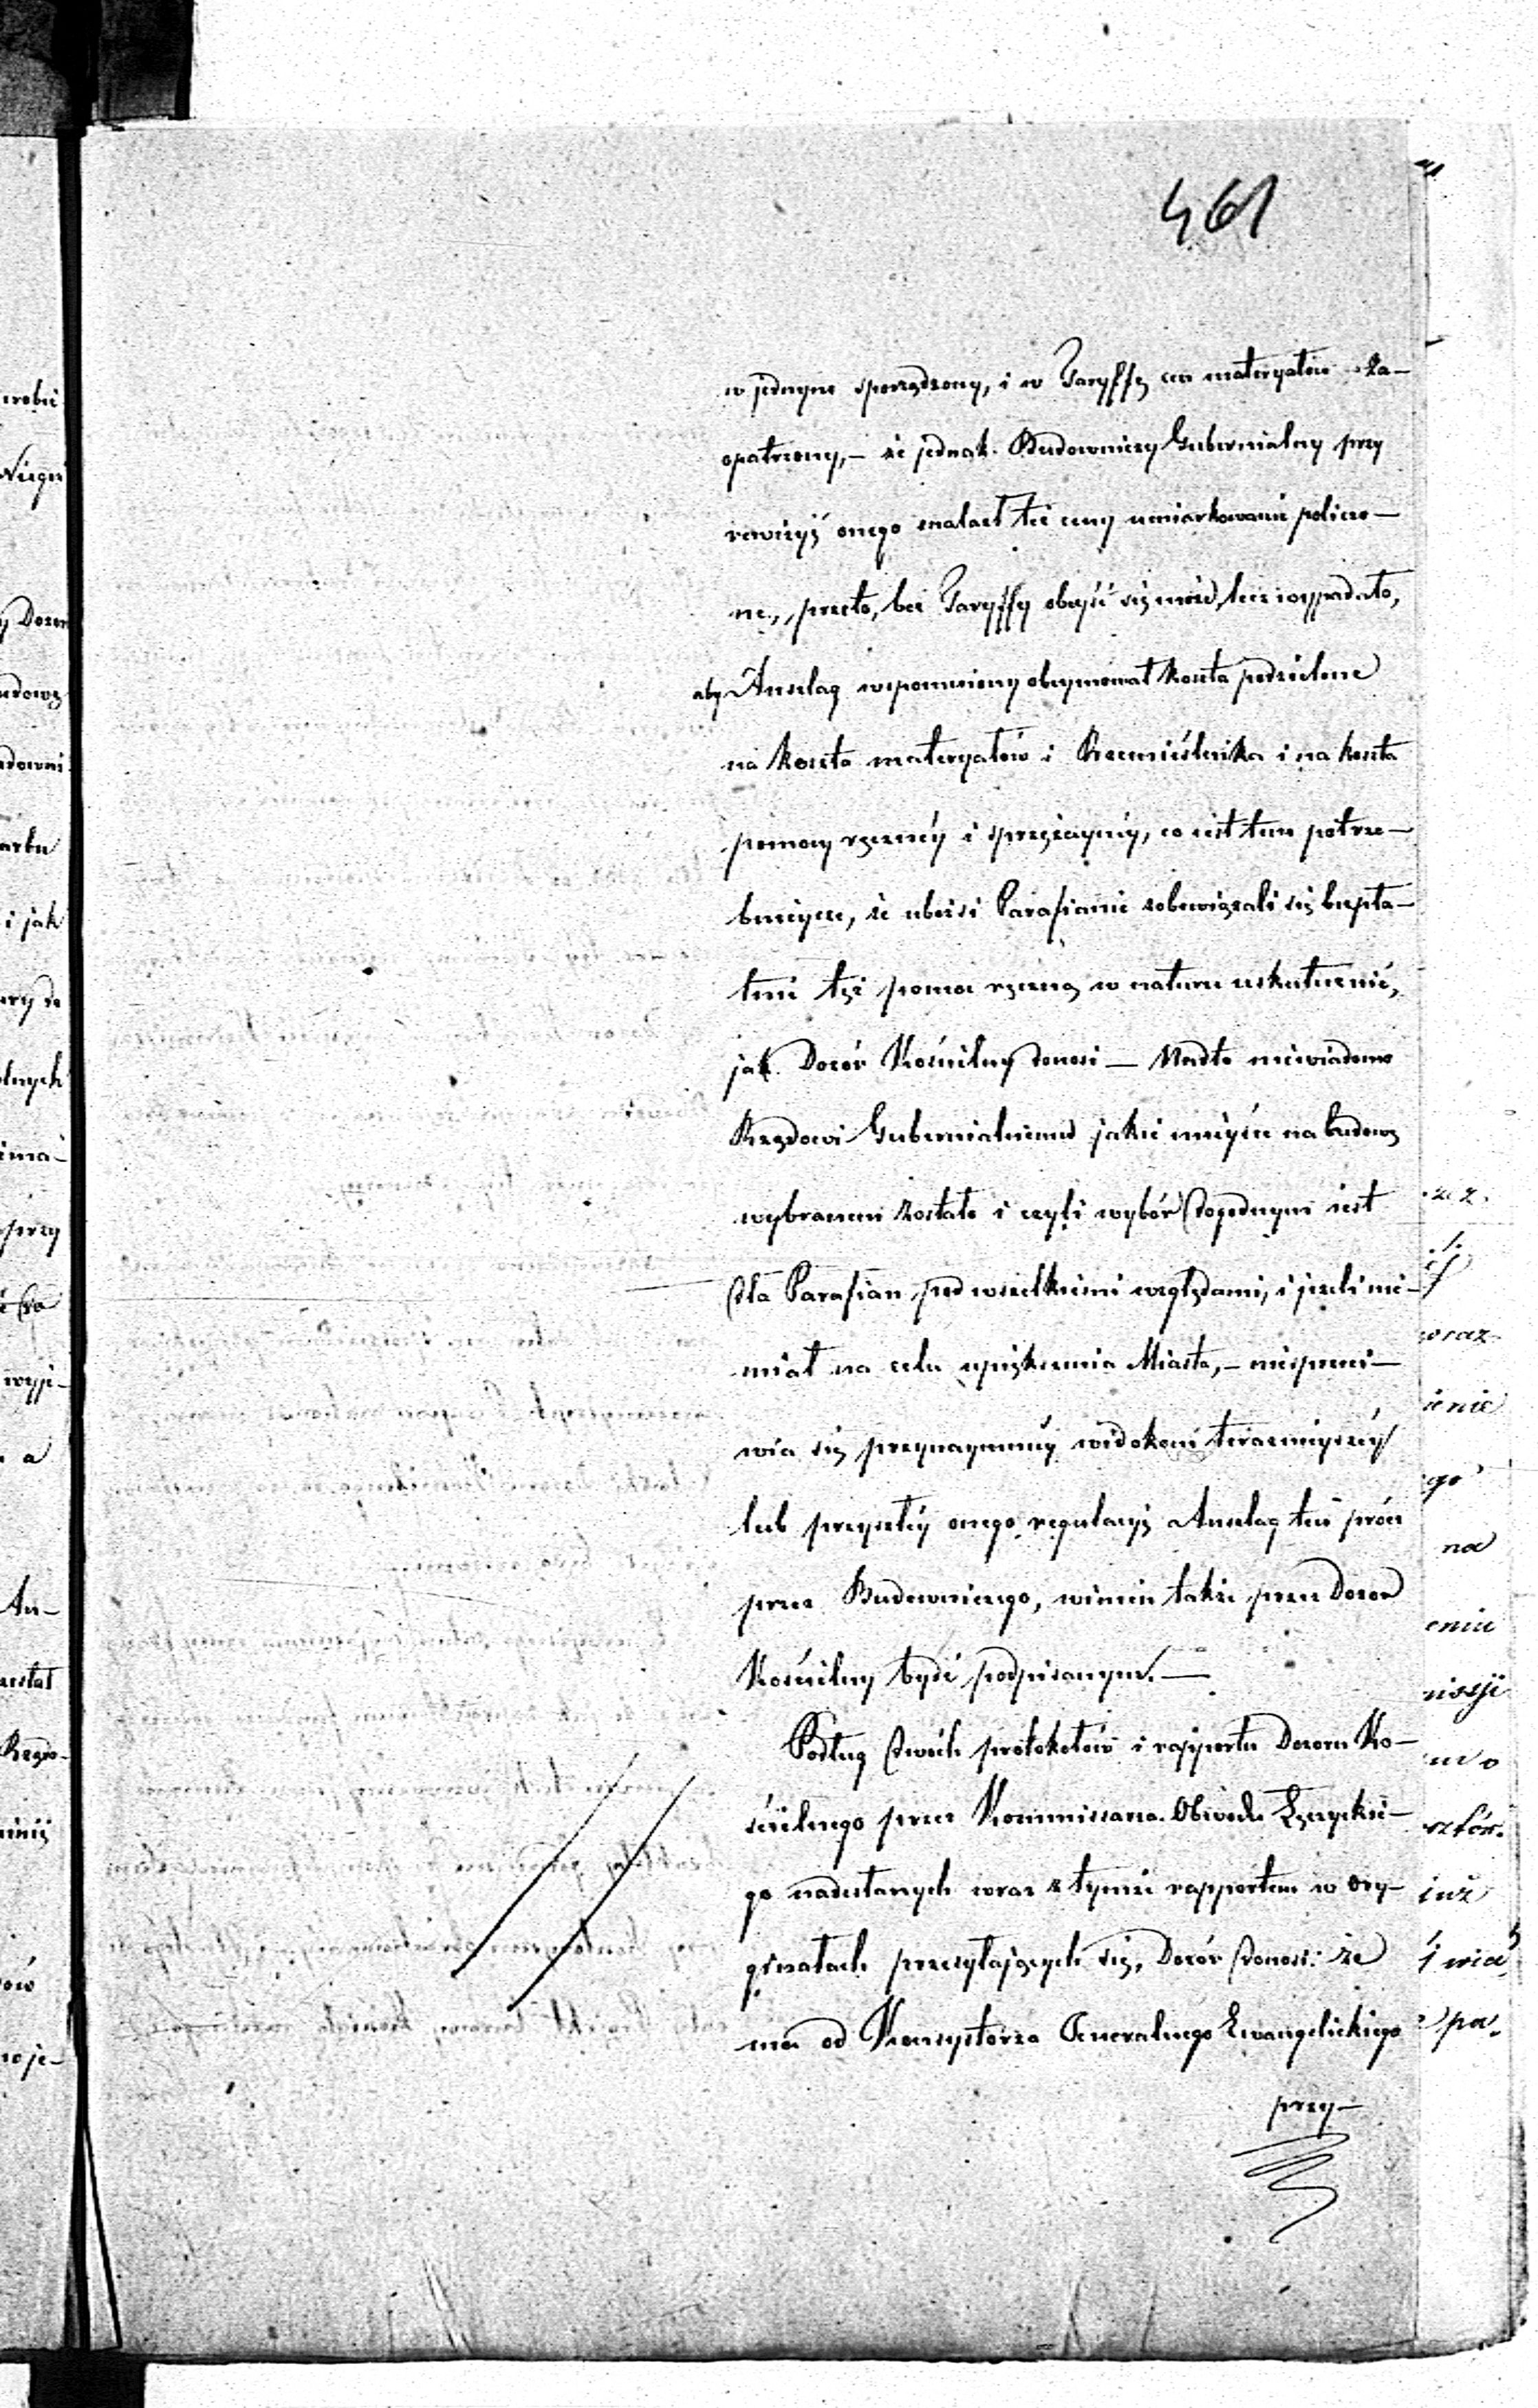 461
w jednym sporządzony, i w Taryffę cen materyałów za-
opatrzony, - że jednak Budowniczy Gubernialny przy
rewizyi onego znalazł też ceny umiarkowanie policzo-
ne, przeto, bez Taryffy obejść się może, lecz wypadało,
aby Anszlag wspomniony obeymował koszta podzielone
na koszta materyałów i Rzemieślnika i na koszta
pomocy ręcznéy i sprzężaynéy, co iest tem potrze-
bnieysze, że ubożsi Parafianie zobowiązali się bezpła-
tnie tęż pomoc ręczną w naturze uskutecznić,
jak Dozór Kościelny donosi — Nadto niewiadomo
Rządowi Gubernialnemu jakie mieysce na budowę
wybranem zostało i czyli wybór dogodnym iest
dla Parafian pod wszelkiemi względami, i jeżeli nie
miał na celu upiększenia Miasta, - niesprzeci-
wia się przynaymniéy widokom teraźnieyszéy
lub przyszłéy onego regulacyi Anszlag ten prócz
przez Budowniczego, winien także przez Dozór
Kościelny bydź podpisanym. —
Podług dwóch protokołów i rapportu Dozoru Ko-
ścielnego przez Kommissarza Obwodu Łęczyckie-
go nadesłanych wraz z tymże rapportem w ory-
ginałach przesyłających się, Dozór donosi: że
ma od Konsystorza Generalnego Ewangelickiego
przy-